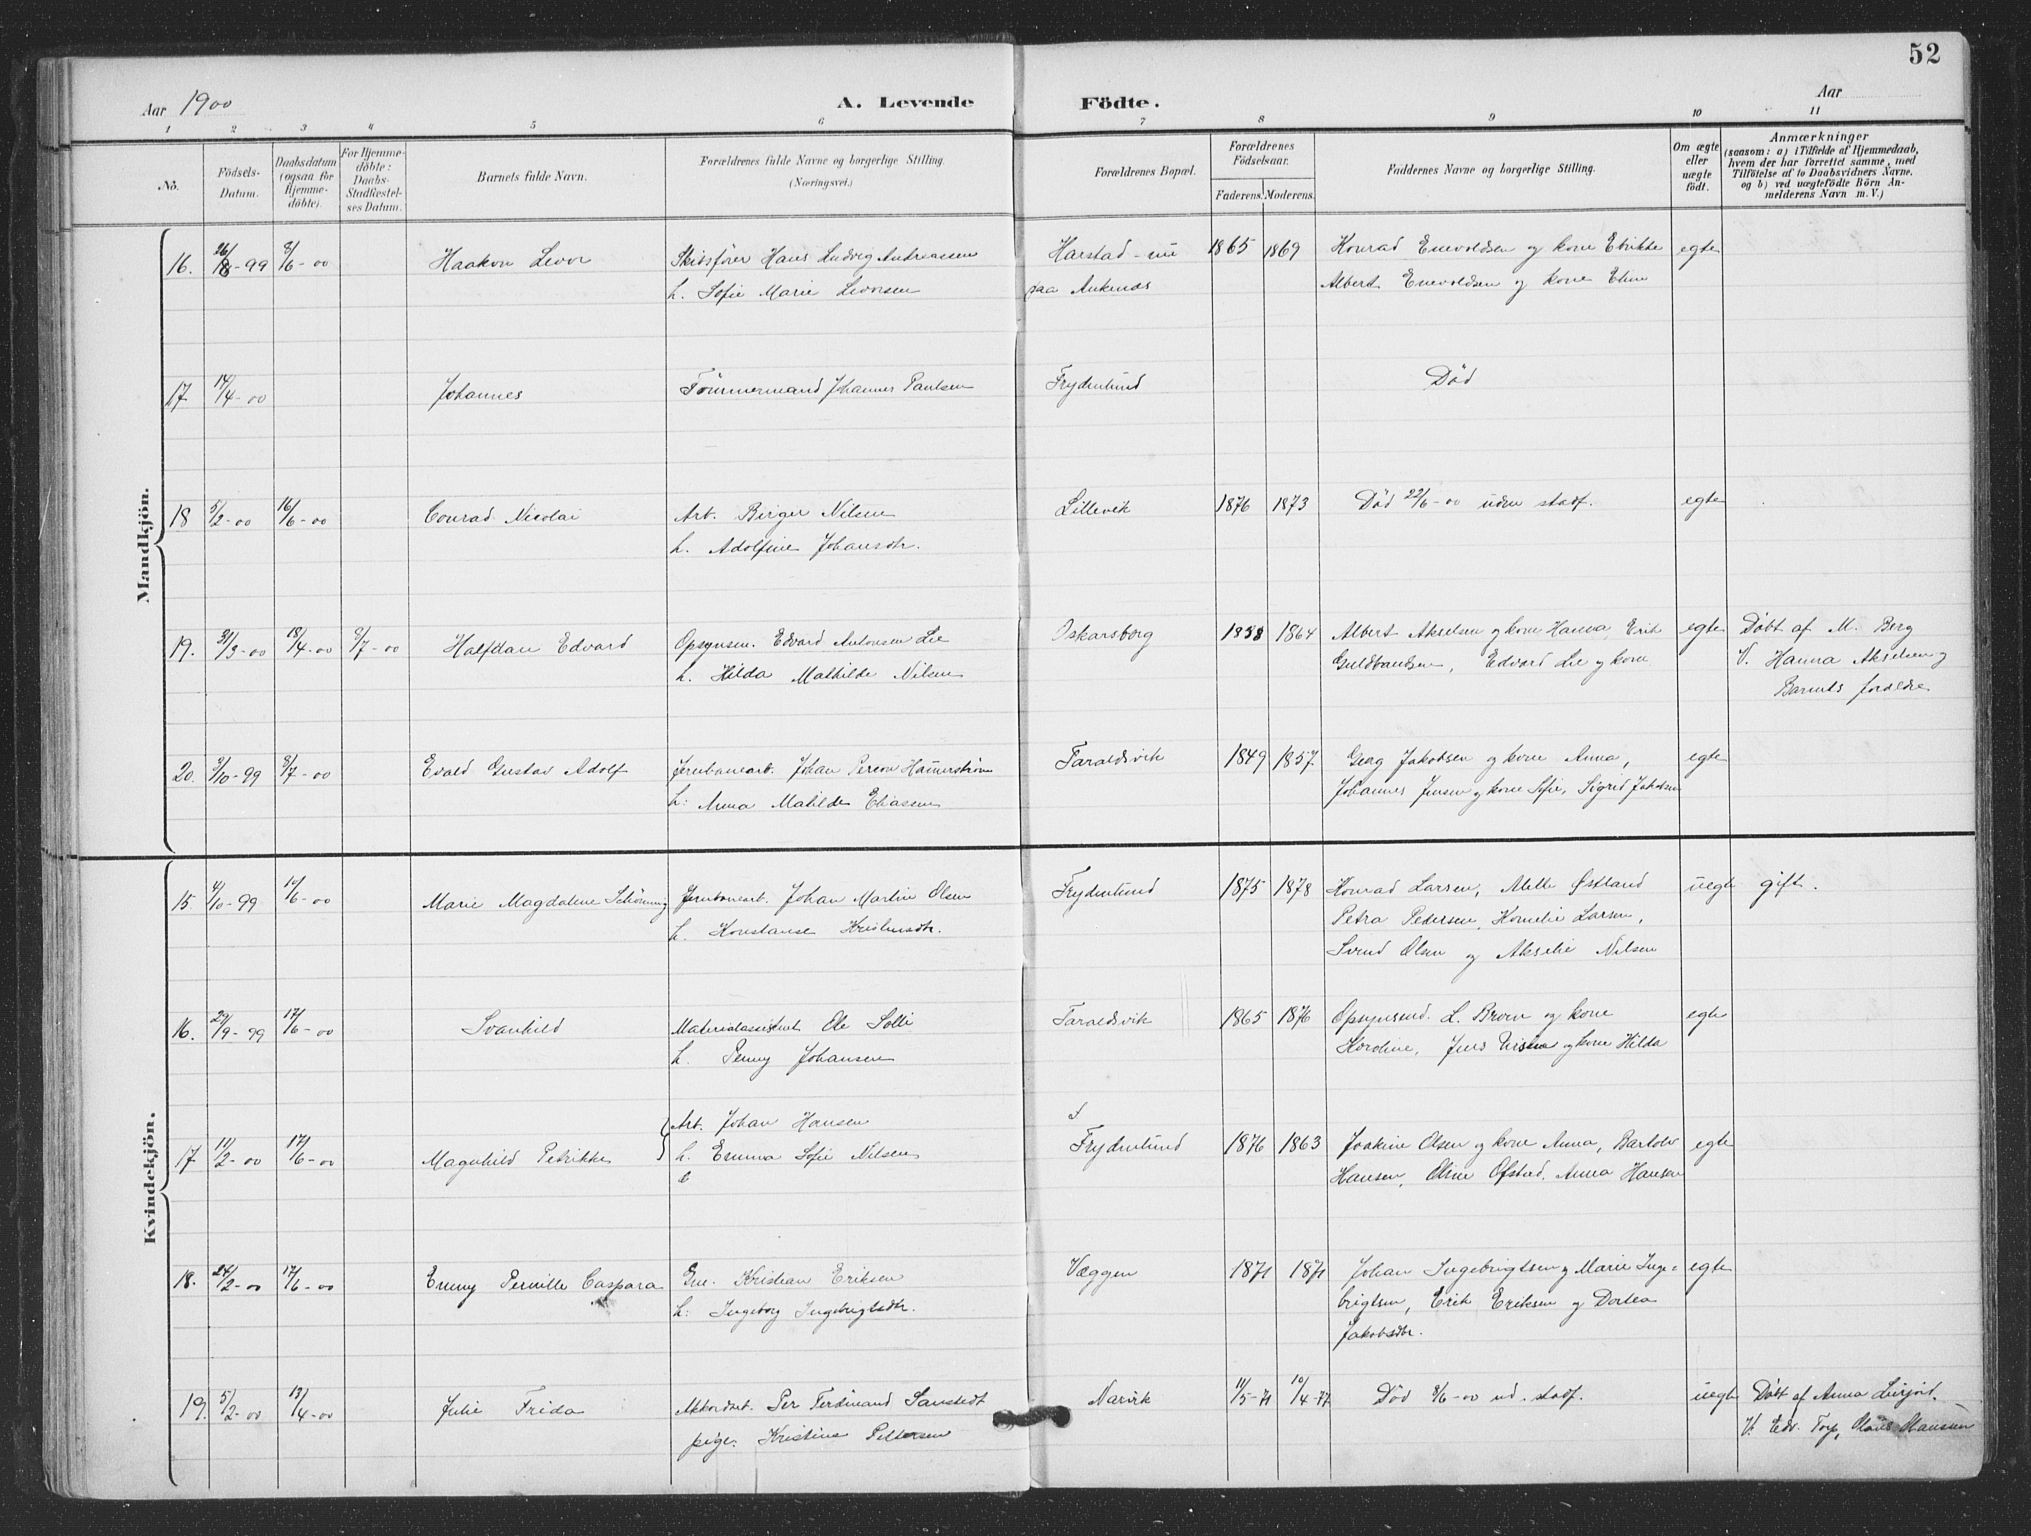 52
Aar 1900 A. Levende Födte. Aar
1 2 3 4 5 6 7 8 9 10 11
No.
Födsels-Datum.
Daabsdatum (ogsaa for Hjemmedöbte).
For Hjemmedöbte: Daabs-Stadfæstelses Datum.
Barnets fulde Navn.
Forældrenes fulde Navne og borgerlige Stilling.
(Næringsvei.)
Forældrenes Bopæl.
Forældrenes Födselsaar.
Faderens. Moderens.
Faddernes Navne og borgerlige Stilling.
Om ægte eller uægte födt.
Anmærkninger
(saasom: a) i Tilfælde af Hjemmedaab,
hvem der har forrettet samme, med
Tilföielse af to Daabsvidners Navne.
og b) ved uægtefödte Börn An-
melderens Navn m. V.)
Mandkjön.
16. 26/8-99 8/6-00 Haakon Levor Skibsfører Hans Ludvig Andreassen Harstad - nu 1865 1869 Konrad Enevoldsen og kone Edrikke egte
h. Sofie Marie Levorsen paa Ankenes Albert Enevoldsen og kone Eline
17 14/4-00 Johannes Tömmermand Johannes Paulsen Frydenlund Död
18 5/2-00 16/6-00 Conrad Nicolai Arb. Birger Nilsen Lillevik 1876 1873 Död 22/6-00 uden stadf. egte
h. Adolfine Johansdtr.
19. 31/3-00 18/4-00 8/7-00 Halfdan Edvard Opsynsm. Edvard Antonsen Lie Oskarsborg 1858 1864 Albert Akselsen og kone Hanna, Erik egte Døbt af M. Berg
h. Hilda Mathilde Nilsen Guldbandsen, Edvard Lie og kone V. Hanna Akselsen og
Barnets forældre
20. 9/10-99 8/7-00 Evald Gustav Adolf Jernbanearb. Johan Person Hammerström Taraldsvik 1849 1857 Georg Jakobsen og kone Anna, egte
h: Anna Matilde Eliassen Johannes Jensen og kone Sofie, Sigrid Jakobsen
Kvindekjön.
15. 4/10-99 10/6-00 Marie Magdalene Schönning Jernbanearb. Johan Martin Olsen Frydenlund 1875 1878 Konrad Larsen, Mette Østland uegte gift.
h. Konstanse Kristensdtr. Petra Pedersen, Kornelie Larsen,
Svend Olsen og Akselie Nilsen
16. 29/9-99 17/6-00 Svanhild Materialassistent Ole Solli Taraldsvik 1865 1876 Opsynsmd. L. Broen og kone egte
h. Penny Johansen Karoline, Jens og kone Hilda
17 11/2-00 17/6-00 Magnhild Petrikke Arb. Johan Hansen Frydenlund 1876 1863 Joakine Olsen og kone Anna, Bartolo egte
h. Emma Sofie Nilsen Hansen, Oline Ofstad, Anna Hansen
18. 24/2-00 17/6-00 Emmy Pernille Caspara Gm. Kristian Eriksen Væggen 1871 1871 Johan Ingebrigtsen og Marie Inge- egte
h: Ingeborg Ingebrigtsdtr. brigtsen, Erik Eriksen og Dortea
Jakobsdtr.
19. 5/2-00 13/4-00 Julie Frida Akkordarb. Per Ferdinand Sanstedt Narvik 11/5-71 10/4-77 Död 8/6-00 ud. stadf. uegte Døbt af Anna
pige. Kristine Pettersen V. Edv. Torp, Olaus Hansen